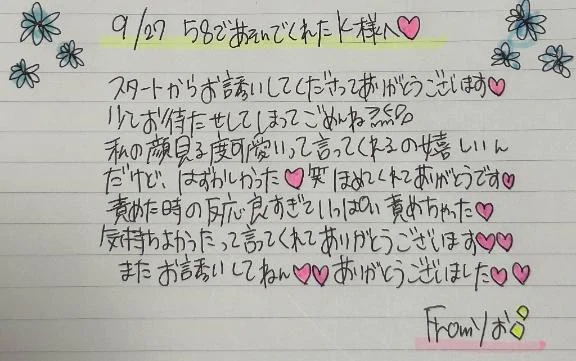 9/27 58であそんでくれたK様へ♡
スタートからお誘いしてくださってありがとうございます♡
少しお待たせしてしまってごめんね
私の顔見る度可愛いって言ってくれるの嬉しいん
だけど、はずかしかった♡笑 ほめてくれてありがとうです♡
責めた時の反応良すぎていっぱい責めちゃった♡
気持ちよかったって言ってくれてありがとうございます♡♡
またお誘いしてねん♡♡ありがとうございました♡♡
Fromりお